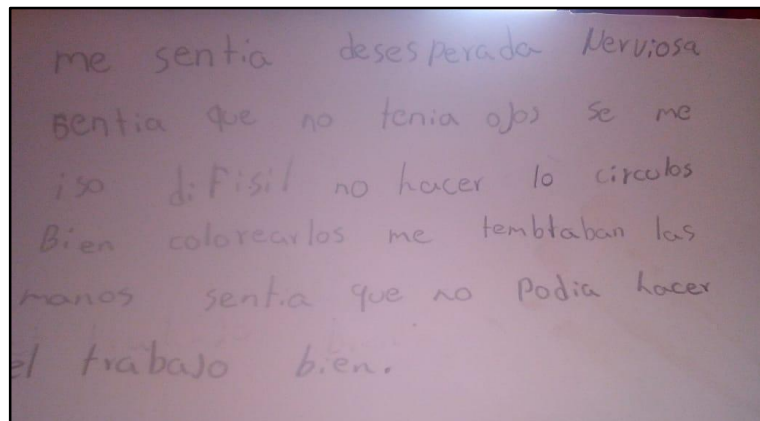 me sentia desesperada Nerviosa
sentia que no tenia ojos se me
iso difisil no hacer lo circulos
Bien colorearlos me temblaban las
manos sentia que no Podia hacer
el trabajo bien.